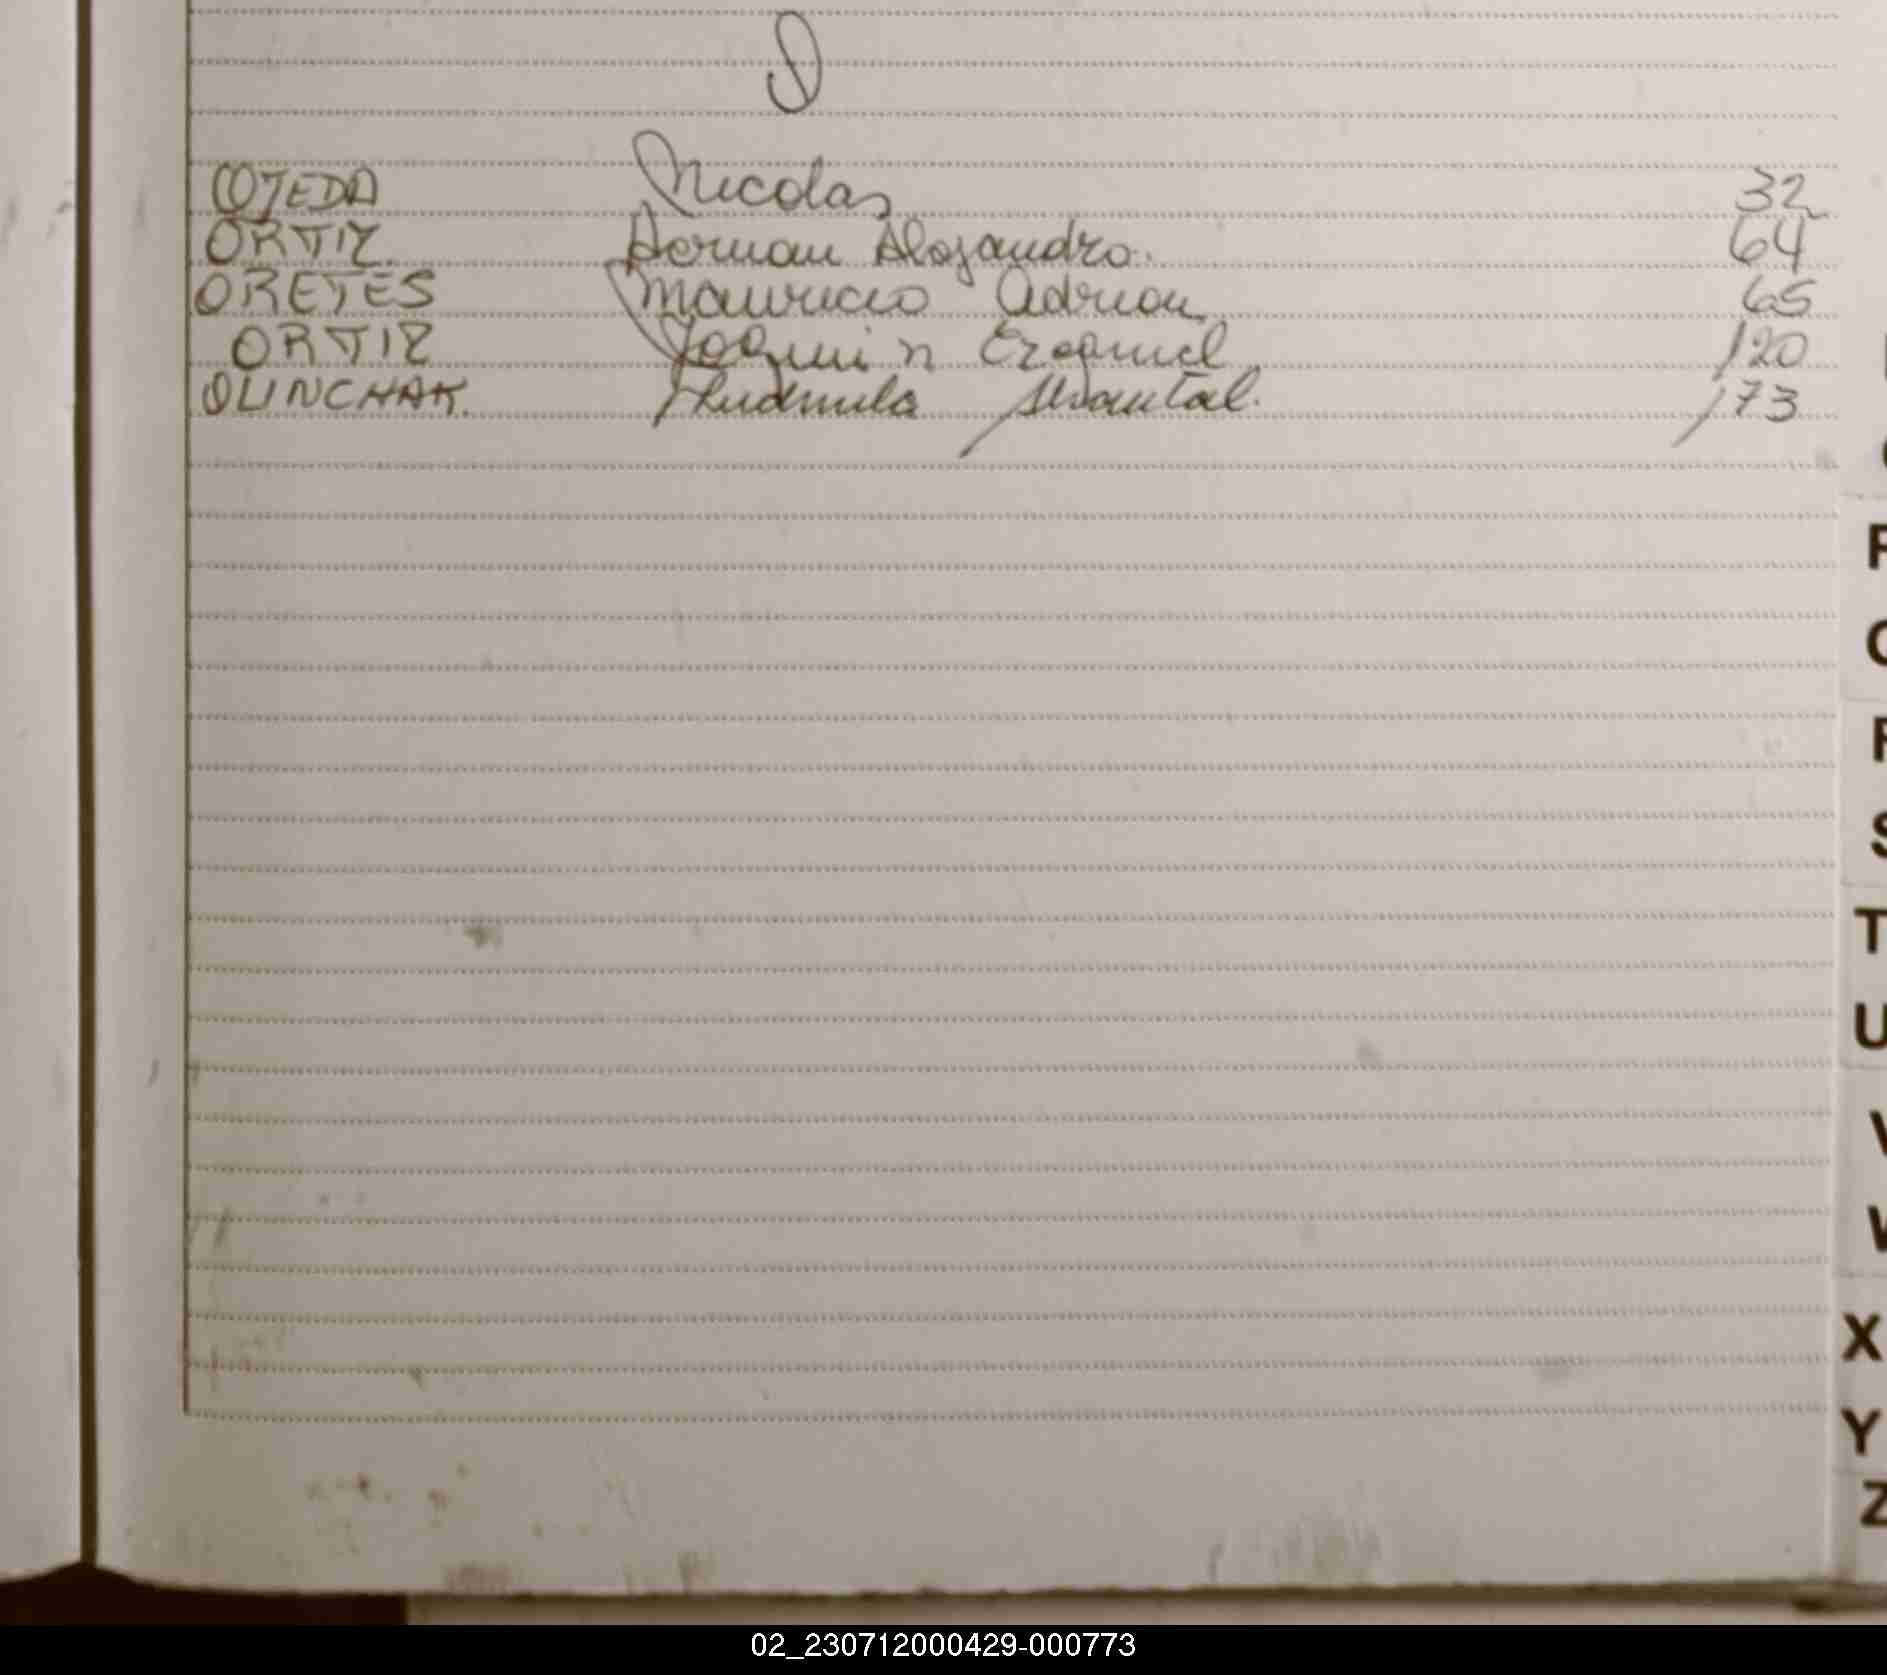 O
OJEDA Nicolas 32
ORTIZ. Hernan Alejandro. 64
ORETES Mauricio Adrian 65
ORTIZ Joaquin Ezequiel 120
OLINCHAK. Ludmila 173
P
Q
R
S
T
U
V
W
X
Y
Z
02_230712000429-000773